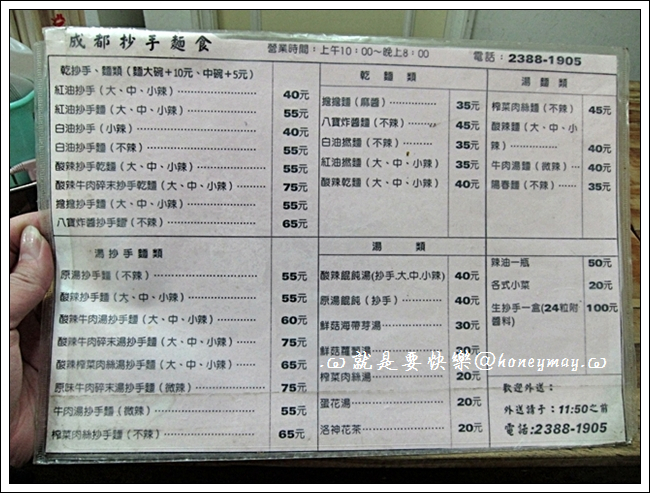 成都抄手麵食
營業時間：上午10：00～晚上8：00
電話：2388-1905
乾抄手、麵類（麵大碗＋10元、中碗＋5元）
紅油抄手（大、中、小辣）………… 40元
紅油抄手麵（大、中、小辣）………… 55元
白油抄手（小辣）………… 40元
白油抄手麵（不辣）………… 55元
酸辣抄手乾麵（大、中、小辣）………… 55元
酸辣牛肉碎末抄手乾麵（大、中、小辣）…… 75元
擔擔抄手麵（大、中、小辣）………… 55元
八寶炸醬抄手麵（不辣）………… 65元
湯抄手麵類
原湯抄手麵（不辣）………… 55元
酸辣抄手麵（大、中、小辣）………… 55元
酸辣牛肉湯抄手麵（大、中、小辣）…… 60元
酸辣牛肉碎末湯抄手麵（大、中、小辣）… 75元
酸辣榨菜肉絲湯抄手麵（大、中、小辣）… 65元
原味牛肉碎末湯抄手麵（微辣）………… 75元
牛肉湯抄手麵（微辣）………… 55元
榨菜肉絲抄手麵（不辣）………… 65元
乾麵類
擔擔麵（麻醬）………… 35元
八寶炸醬麵（不辣）…… 45元
白油撚麵（不辣）……… 35元
紅油撚麵（大、中、小辣）… 35元
酸辣乾麵（大、中、小辣）… 40元
湯類
酸辣餛飩湯(抄手.大.中.小辣) 40元
原湯餛飩（抄手）……… 40元
鮮菇海帶芽湯………… 30元
鮮菇蘿蔔湯 30元
榨菜肉絲湯 20元
蛋花湯………… 20元
洛神花茶………… 20元
湯麵類
榨菜肉絲麵（不辣） 45元
酸辣麵（大、中、小
辣）………… 40元
牛肉湯麵（微辣）… 40元
陽春麵（不辣）… 35元
辣油一瓶 50元
各式小菜 20元
生抄手一盒(24粒附 100元
醬料)
歡迎外送：
外送請于：11:50之前
電話:2388-1905
.ω就是要快樂@honeymay.ω